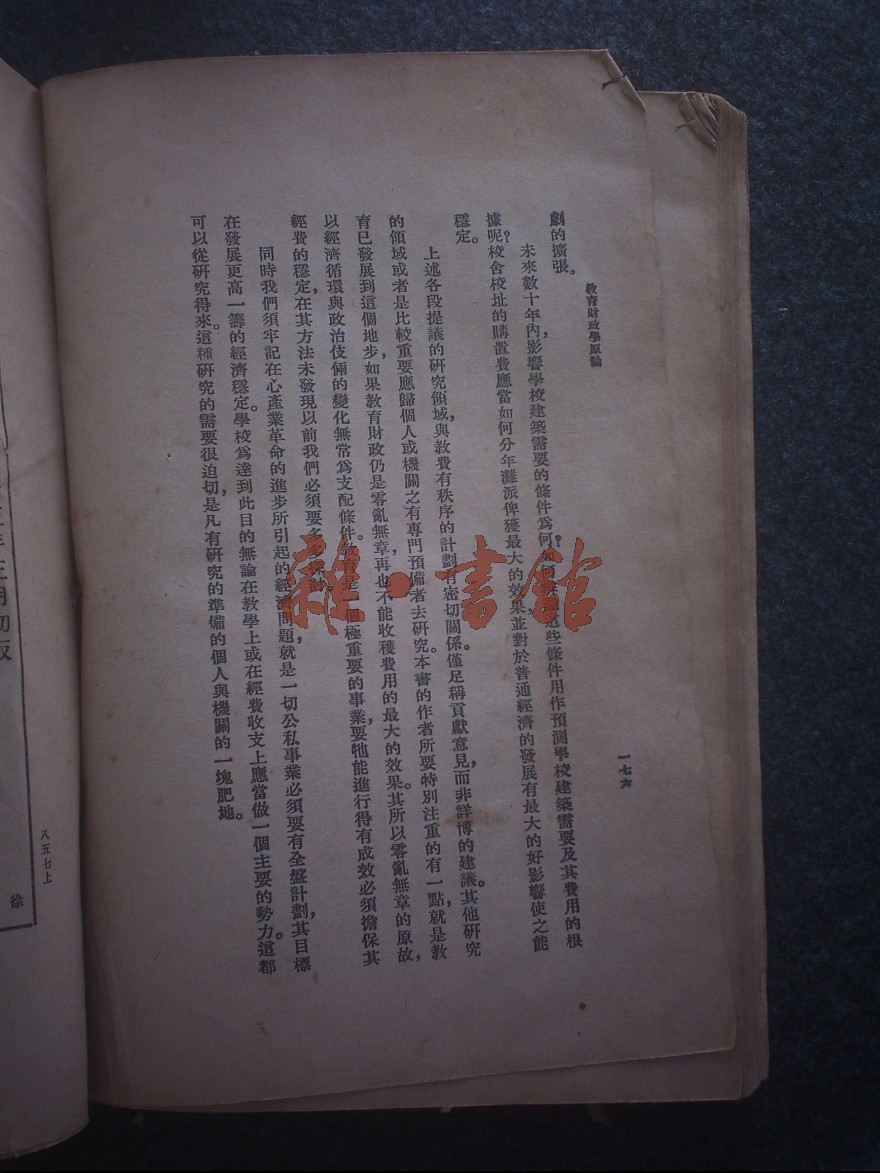 教育財政學原論
一七六
劇的擴張。
未來數十年內，影響學校建築需要的條件爲何？這些條件用作預測學校建築需要及其費用的根
據呢？校舍校址的購置費應當如何分年灘派，俾獲最大的效果，並對於普通經濟的發展有最大的好影響，使之能
穩定。
上述各段提議的研究領域，與教費有秩序的計劃有密切關係。僅足稱貢獻意見，而非詳博的建議。其他研究
的領域或者是比較重要，應歸個人或機關之有專門預備者去研究。本書的作者所要特別注重的有一點，就是教
育已發展到這個地步，如果教育財政仍是零亂無章，再也不能收穫費用的最大的效果。其所以零亂無章的原故，
以經濟循環與政治伎倆的變化無常爲支配條件。是一個極重要的事業，要牠能進行得有成效，必須擔保其
經費的穩定，在其方法未發現以前，我們必須要多多探討。
同時我們須牢記在心，產業革命的進步所引起的經濟問題，就是一切公私事業必須要有全盤計劃，其目標
在發展更高一籌的經濟穩定。學校爲達到此目的，無論在教學上或在經費收支上，應當做一個主要的勢力。這都
可以從研究得來。這種研究的需要很迫切，是凡有研究的準備的個人與機關的一塊肥地。
雜·書館
八五七上
徐